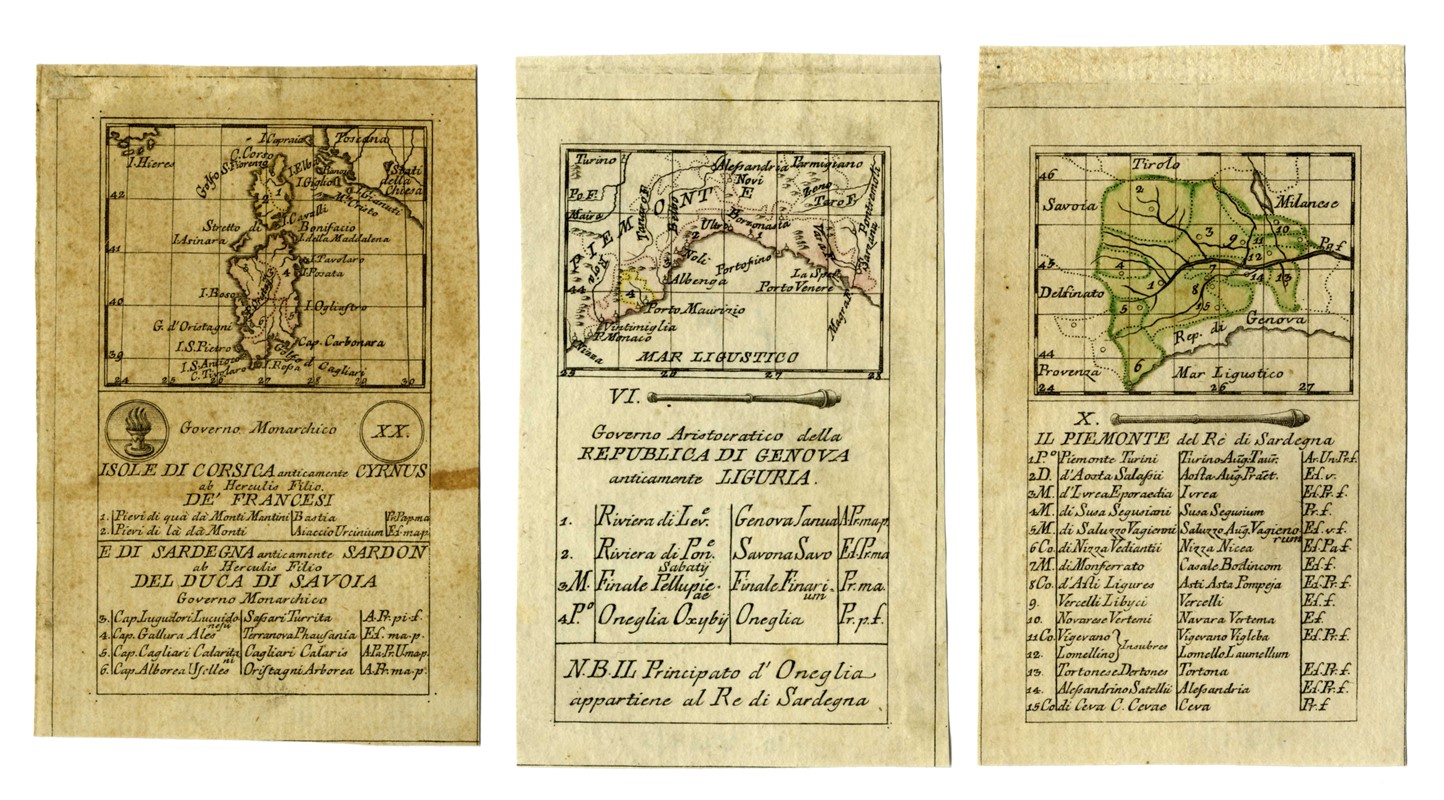 I. Capraia
Toscana
I. Hieres
C. Corso
Golfo S. Fiorenzo
I. Elba
I. Giglio
Stati della Chiesa
I. Gianuti
M. Cristo
42
1
2
I. Cavalli
Stretto di Bonifacio
I. Asinara
I. della Maddalena
41
I. Tavolaro
4
I. Posata
3
I. Bosa
I. Ogliastro
40
6
5
G. d'Oristagni
I. S. Pietro
Cap. Carbonara
I. S. Antioco
Golfo d Cagliari
39
C. Tivolaro
I. Rossa
24 25 26 27 28 29 30
Governo Monarchico
XX.
ISOLE DI CORSICA anticamente CYRNUS
ab Herculis Filio.
DE' FRANCESI
1. Pievi di quà dà Monti Mantini Bastia
2. Pievi di là dà Monti Aiaccio Urcinium Ef.map.
E DI SARDEGNA anticamente SARDON
ab Herculis Filio
DEL DUCA DI SAVOIA
Governo Monarchico
3. Cap. Lugudori Lucuidonesii Sassari Turrita A.Pr.pi.f.
4. Cap. Gallura Ales Terranova Phausania Ef. ma.p.
5. Cap. Cagliari Calaritani Cagliari Calaris A.Pa.Pr.U.ma.p.
6. Cap. Alborea Uselles Oristagni Arborea A.Pr.ma.p.
Turino
Alessandria
Parmigiano
Novi
Po F.
Zeno
Taro F.
Pontremoli
Maira
PIEMONTE
Tanaro F.
Belbo
Ultra
Borzonasia
Vara F.
Barzana
1
2
Roia
Noli
Portofino
3
La Spez.
44
Albenga
Porto Venere
4
Porto Maurizio
Magra F.
Vintimiglia
P. Monaco
Nizza
MAR LIGUSTICO
25 26 27 28
VI.
Governo Aristocratico della
REPUBLICA DI GENOVA
anticamente LIGURIA.
1. Riviera di Lev.e Genova Janua A.Pr.ma.p.
2. Riviera di Pon.e Sabatij Savona Savo Ef.Pr.ma
3M. Finale Pellupieae Finale Finarium Pr. ma.
4P.o Oneglia Oxybij Oneglia Pr. p. f.
N.B. IL Principato d' Oneglia
appartiene al Re di Sardegna
46
Tirolo
2
Savoia
Milanese
3
9
10
11
Po f
45
4
12
7
14
13
Delfinato
1
8
5
15
Rep. di Genova
44
6
Provenza
Mar Ligustico
24 26 27
X.
IL PIEMONTE del Rè di Sardegna
1P.o Piemonte Turini Turino Aug. Taur. Ar.Un.P.f.
2D. d'Aosta Salassii Aosta Aug. Praet. Ef. v.
3M. d'Ivrea Eporaedia Ivrea Ef.Pr. f.
4M. di Susa Segusiani Susa Segusium Pr. f.
5M. di Saluzzo Vagienni Saluzzo Aug. Vagienorum Ef. v. f.
6Co. di Nizza Vediantii Nizza Nicea Ef.Pa.f.
7M. di Monferrato Casale Bodincom Ef. f.
8Co. d'Asti Ligures Asti Asta Pompeja Ef.Pr. f.
9. Vercelli Libyci Vercelli Ef. f.
10. Novarese Vertemi Navara Vertema Ef.
11Co. Vigevano Insubres Vigevano Vigleba Ef.Pr. f.
12. Lomellino Lomello Laumellum
13. Tortonese Dertones Tortona Ef.Pr. f.
14. Alessandrino Satellii Alessandria Ef.Pr. f.
15Co. di Ceva C. Cevae Ceva Pr. f